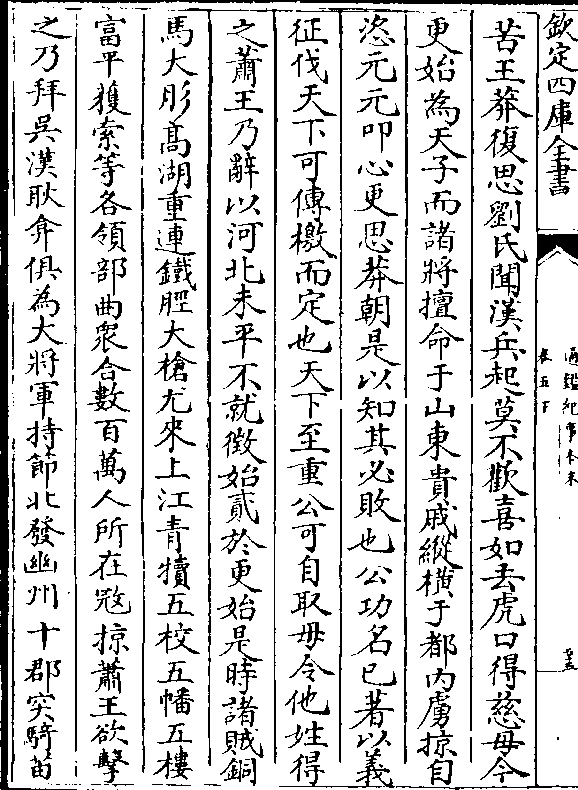 欽定四庫全書
通鑑紀事本末
卷五下
苦王莽復思劉氏聞漢兵起莫不歡喜如去虎口得慈母今
更始為天子而諸將擅命于山東貴戚縱横于都内虜掠自
恣元元叩心更思莽朝是以知其必敗也公功名已著以義
征伐天下可傳檄而定也天下至重公可自取毋令他姓得
之蕭王乃辭以河北未平不就徴始貳於更始是時諸賊銅
馬大肜髙湖重連鐵脛大槍尤來上江青犢五校五幡五樓
富平獲索等各領部曲衆合數百萬人所在宼掠蕭王欲擊
之乃拜呉漢耿弇俱為大將軍持節北發幽州十郡突騎苖